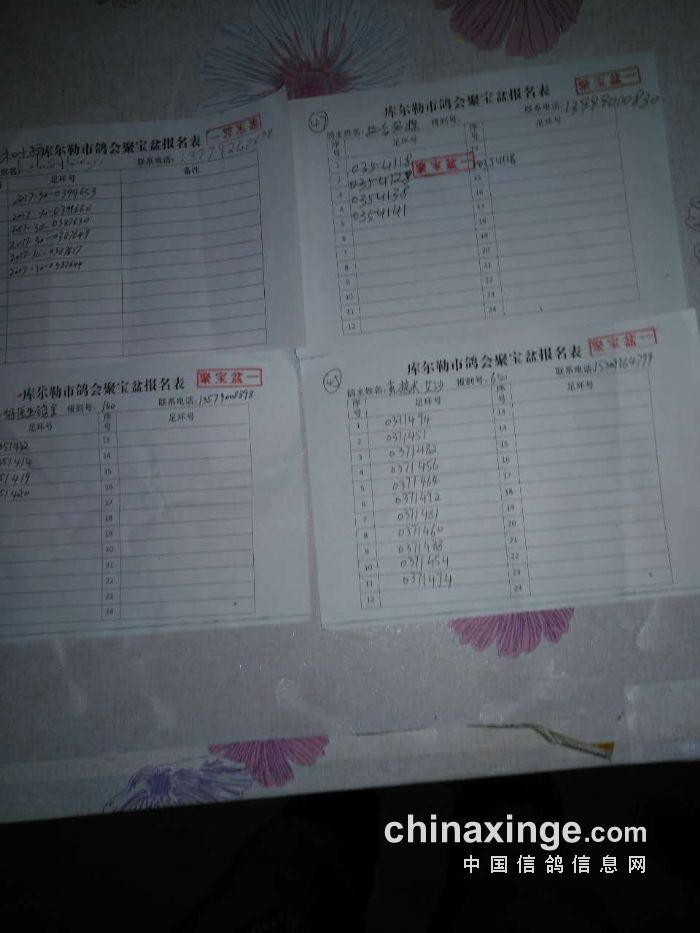 聚宝盆一
库尔勒市鸽会聚宝盆报名表
联系电话:
足环号 备注
2017-30-0399653
2017-30-0399660
2017-30-0387630
2017-30-0387649
2017-30-0387644
47
聚宝盆一
库尔勒市鸽会聚宝盆报名表
鸽主姓名: 组别号: 联系电话:13999000830
序号 足环号 序号 足环号
1 0354118
2 0354128
3 0354138
4 0354141
聚宝盆一
5
6
7
8
9
10
11
12
15
16
17
18
19
20
21
22
23
24
聚宝盆一
库尔勒市鸽会聚宝盆报名表
组别号: 160 联系电话:13579008898
足环号 序号 足环号
13
14
15
16
17
18
19
20
21
22
23
24
48
聚宝盆一
库尔勒市鸽会聚宝盆报名表
鸽主姓名: 组别号: 联系电话:15309964799
序号 足环号 序号 足环号
1 0371494 13
2 0371451 14
3 0371482 15
4 0371456 16
5 0371464 17
6 0371492 18
7 0371481 19
8 0371460 20
9 0371488 21
10 0371454 22
11 0371474 23
12 24
chinaxinge.com
中国信鸽信息网